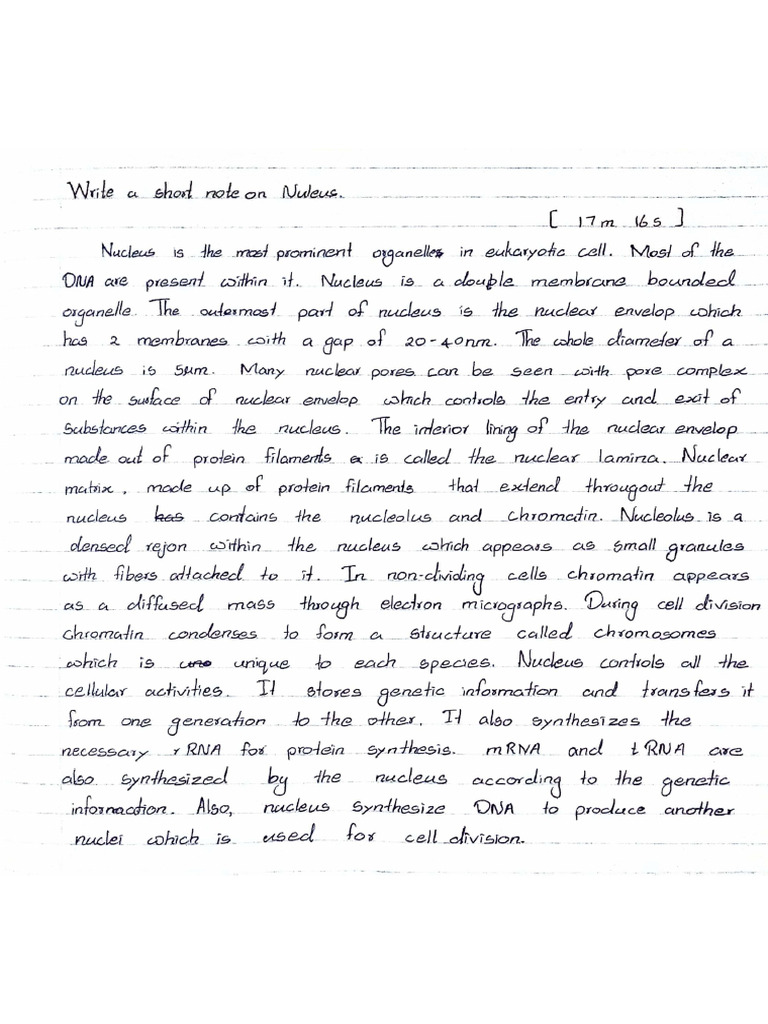 Write a short note on Nuleus.
[ 17m 16s ]
Nucleus is the most prominent organelles in eukaryotic cell. Most of the
DNA are present within it. Nucleus is a double membrane bounded
organelle. The outermost part of nucleus is the nuclear envelop which
has 2 membranes with a gap of 20-40nm. The whole diameter of a
nucleus is 5um. Many nuclear pores can be seen with pore complex
on the surface of nuclear envelop which controls the entry and exit of
substances within the nucleus. The interior lining of the nuclear envelop
made out of protein filaments is called the nuclear lamina. Nuclear
matrix, made up of protein filaments that extend througout the
nucleus has contains the nucleolus and chromatin. Nucleolus is a
densed rejon within the nucleus which appears as small granules
with fibers attached to it. In non-dividing cells chromatin appears
as a diffused mass through electron micrographs. During cell division
chromatin condenses to form a structure called chromosomes
which is unique to each species. Nucleus controls all the
cellular activities. It stores genetic information and transfers it
from one generation to the other. It also synthesizes the
necessary rRNA for protein synthesis. mRNA and tRNA are
also synthesized by the nucleus according to the genetic
information. Also, nucleus synthesize DNA to produce another
nuclei which is used for cell division.